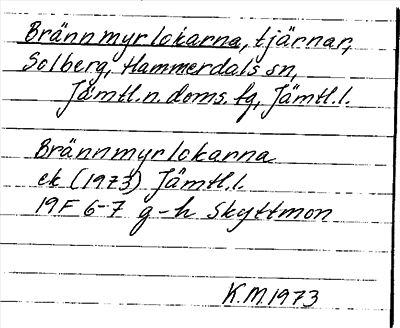 Brännmyrlokarna, tjärnar,
Solberg, Hammerdals sn,
Jämtl.n.doms.fg, Jämtl.l.
Brännmyrlokarna
ek (1973) Jämtl.l.
19F 6-7 g-h Skyttmon
K.M.1973